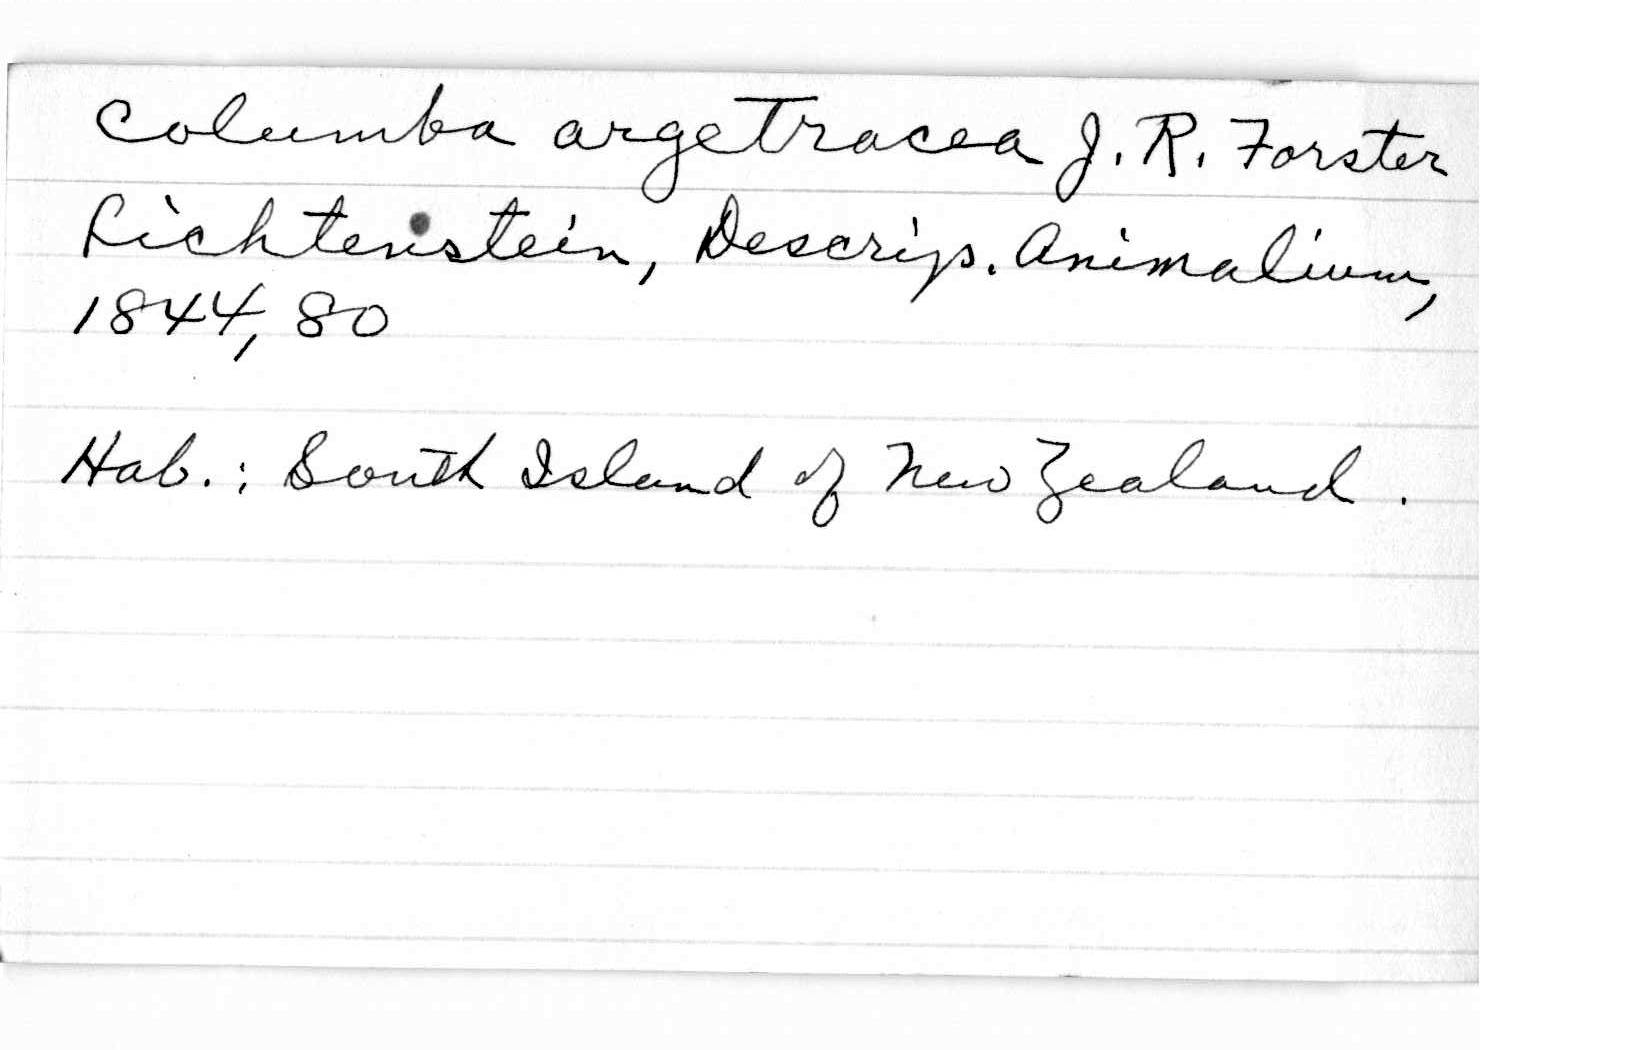 Columba argetracea J. R. Forster
Lichtenstein, Descrip. Animalium,
1844, 80
Hab. : South Island of New Zealand .